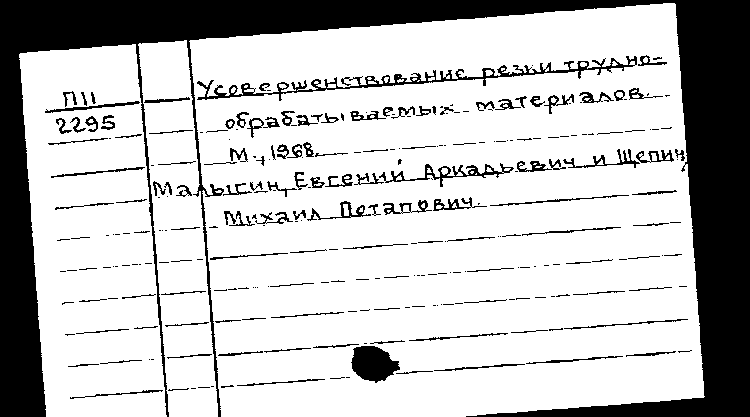 П11
2295
Усовершенствование резки трудно-
обрабатываемых материалов.
М., 1968.
Малыгин, Евгений Аркадьевич и Щепин,
Михаил Потапович.